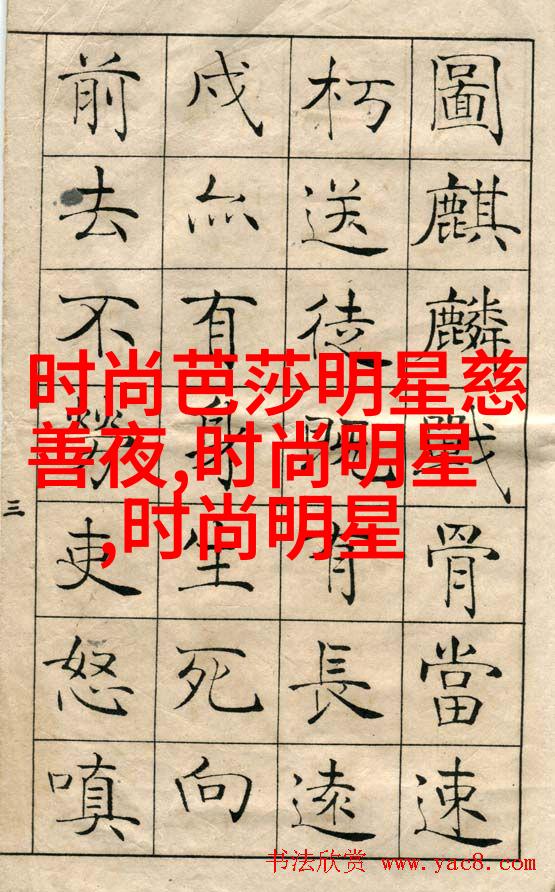 圖麒麟戰骨當速
朽送徒既有長遠
戍亦有身生死向
前去不勞吏怒嗔
三
时尚芭莎明星慈
善夜,时尚明星
,时尚明星
书法欣赏 www.yac8.com